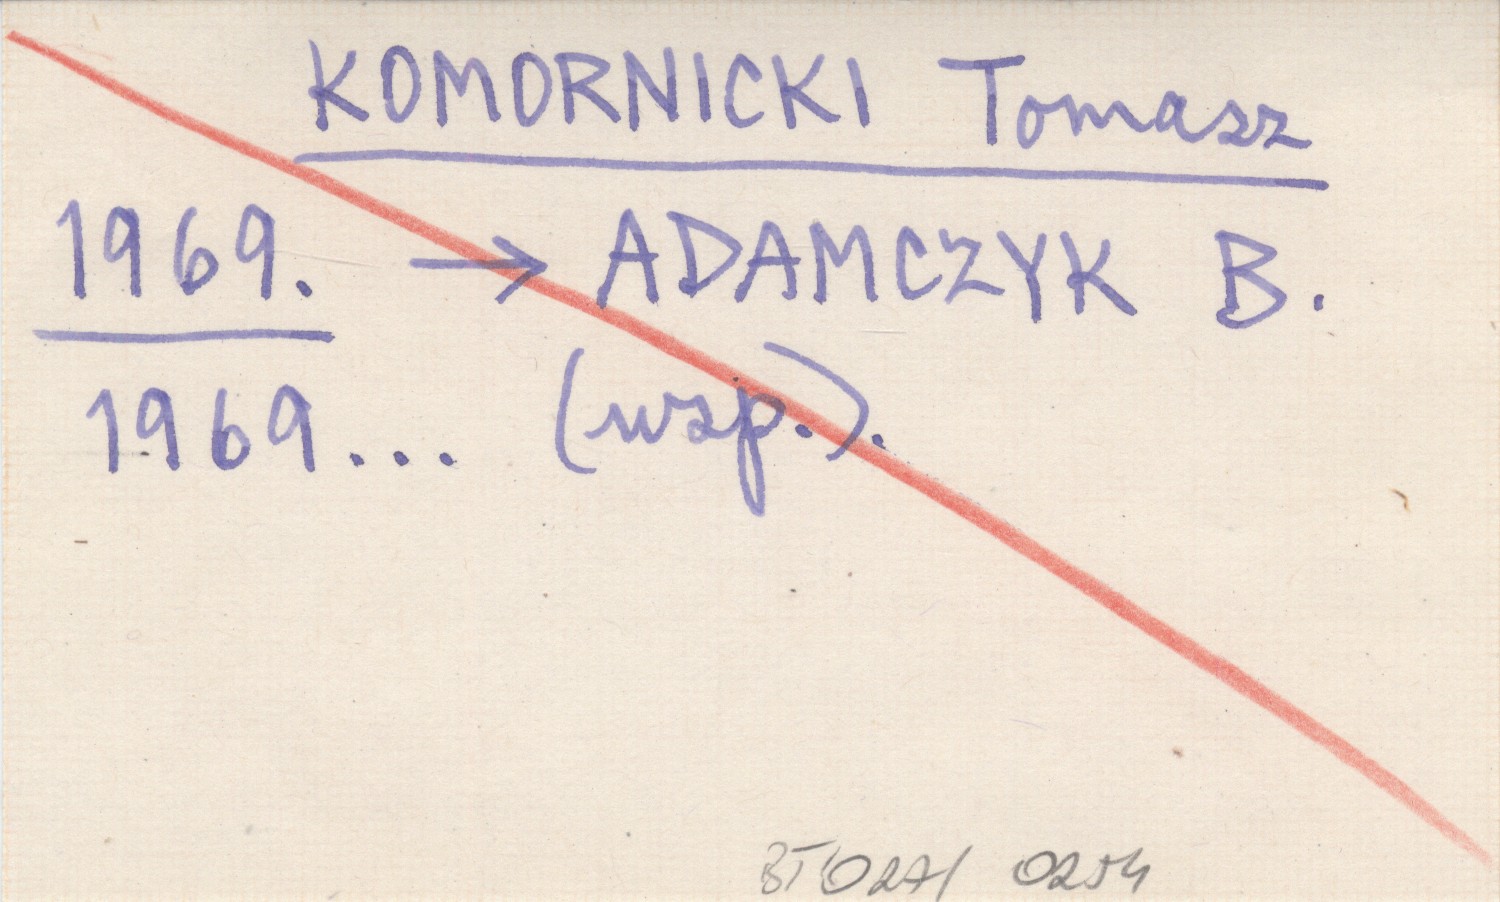 KOMORNICKI Tomasz
1969. → ADAMCZYK B.
1969... (wsp.).
BT 027/ 0254